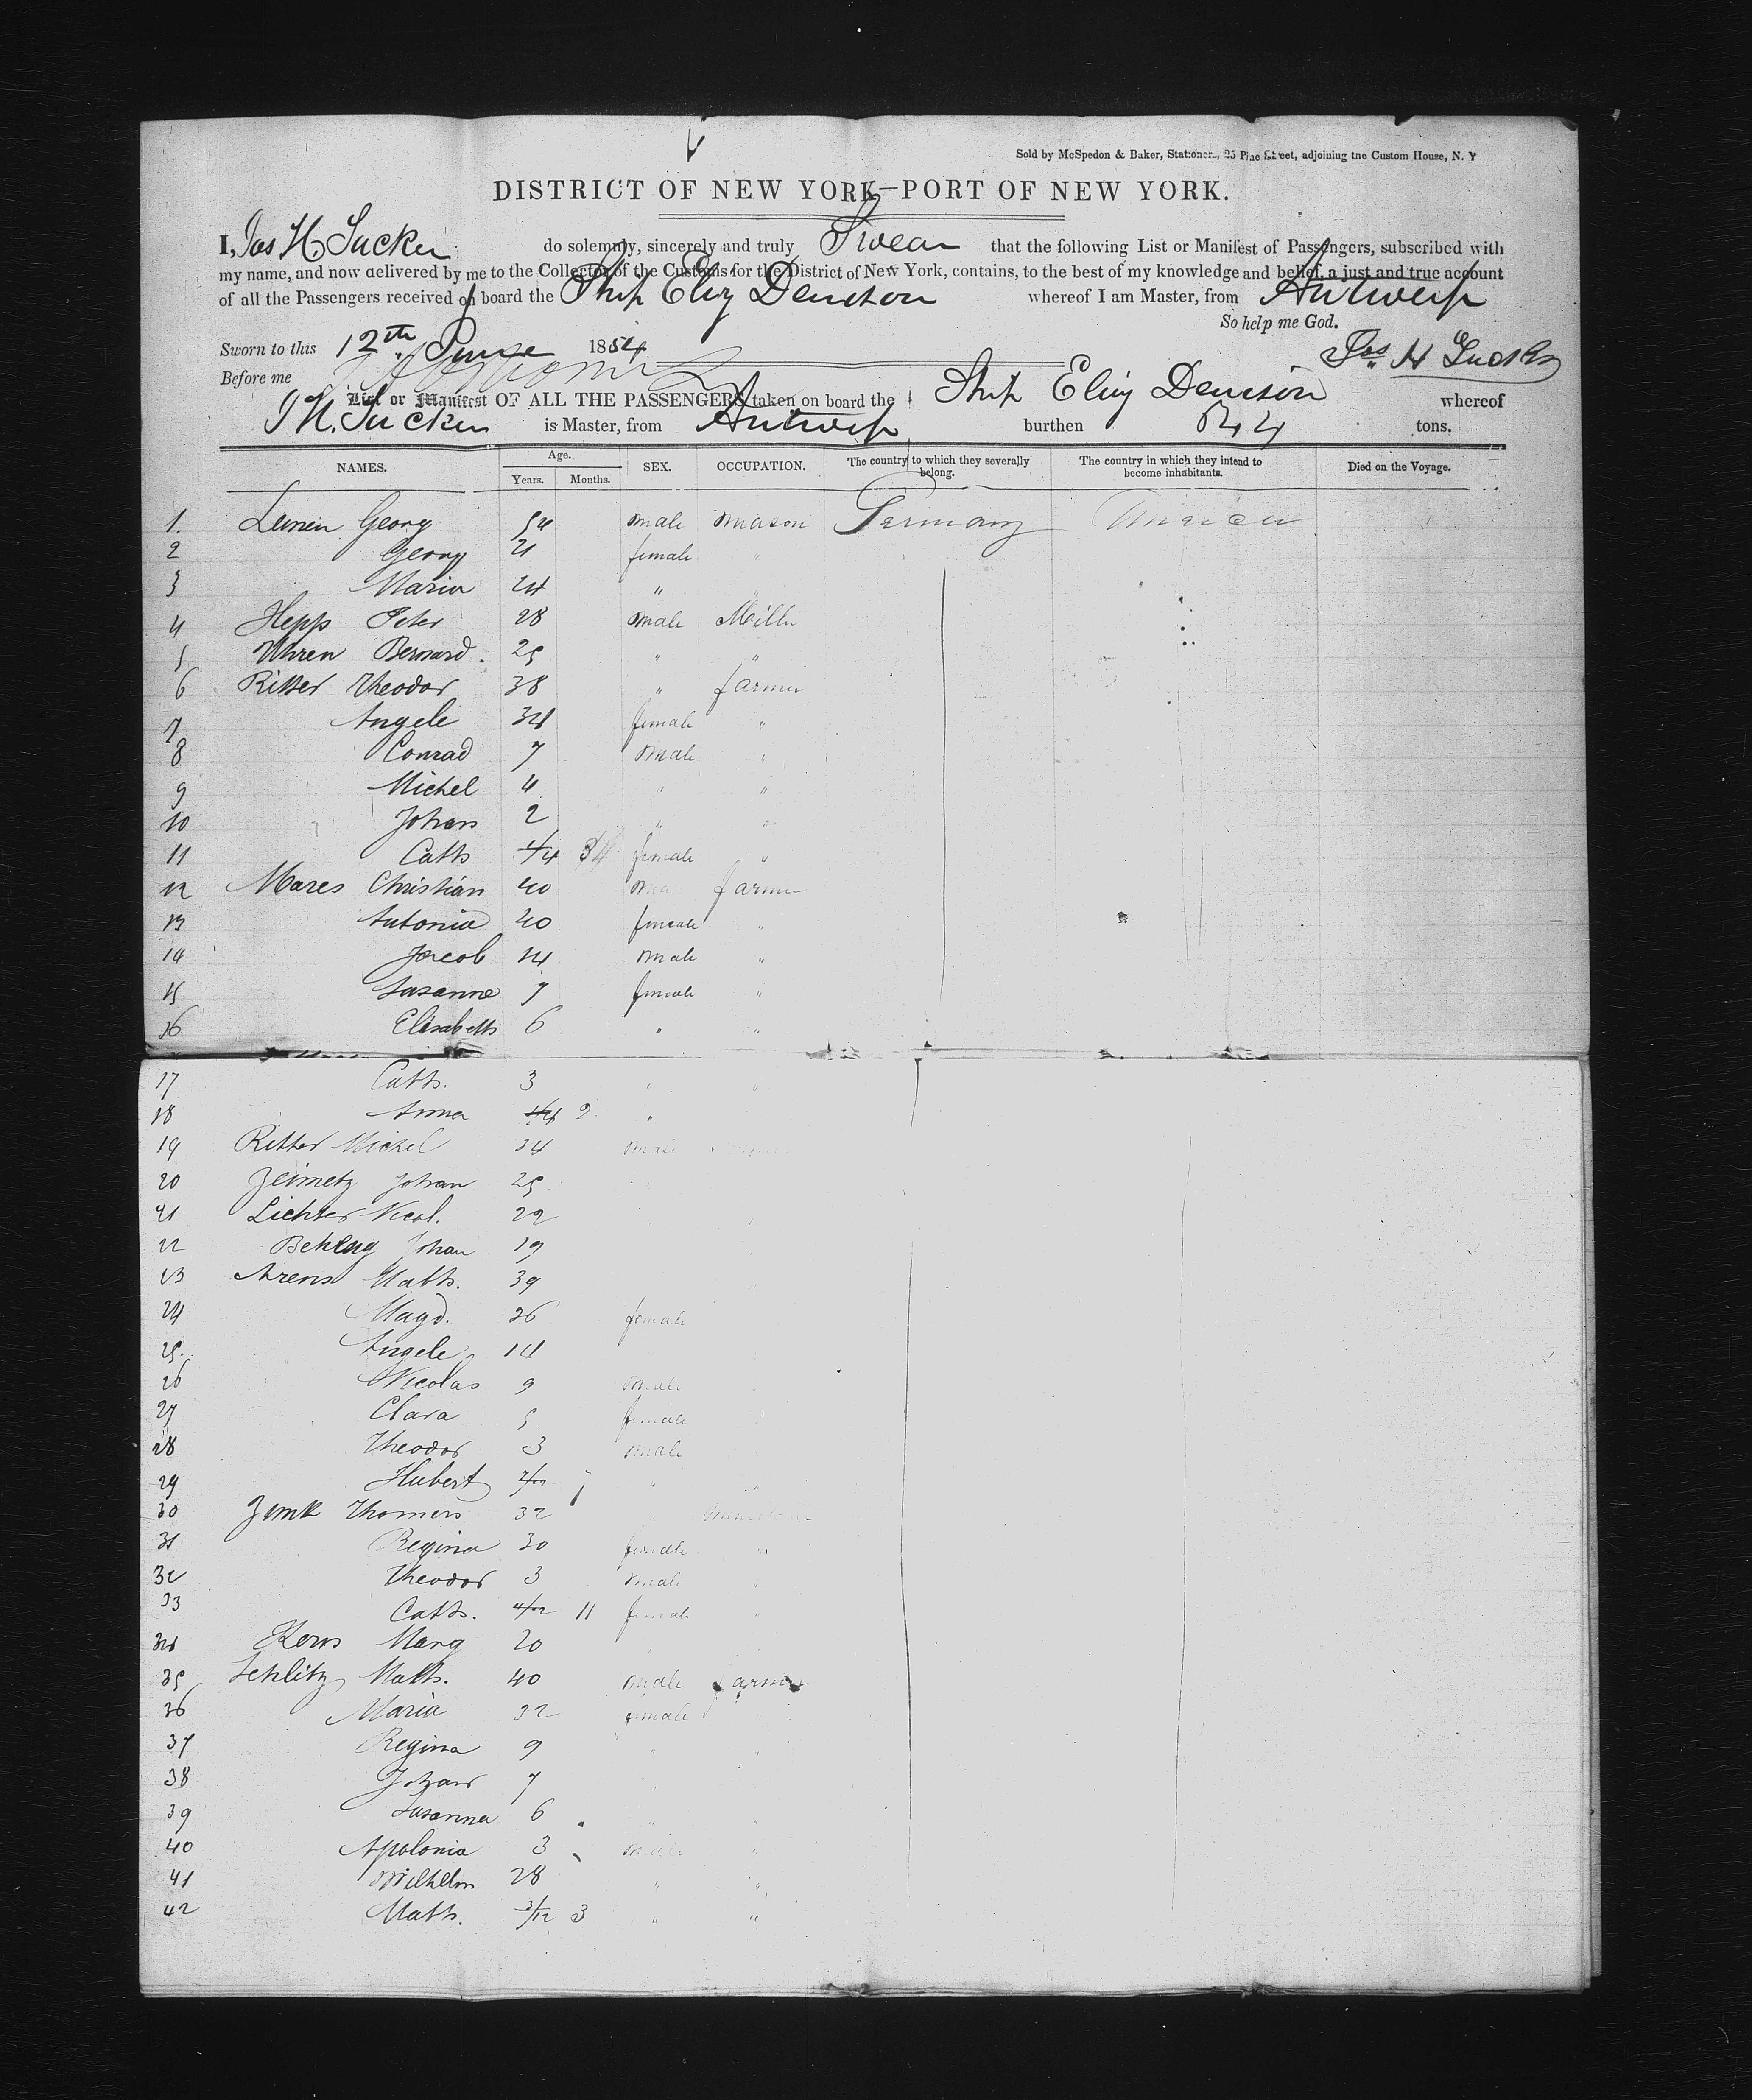 Sold by McSpedon & Baker, Stationers, 25 Pine Street, adjoining the Custom House, N. Y
DISTRICT OF NEW YORK—PORT OF NEW YORK.
I, Jos H. Tucker do solemnly, sincerely and truly Swear that the following List or Manifest of Passengers, subscribed with
my name, and now delivered by me to the Collector of the Customs for the District of New York, contains, to the best of my knowledge and belief, a just and true account
of all the Passengers received on board the Ship Eliz Denison whereof I am Master, from Antwerp
So help me God.
Sworn to this 12th June 1854 Jos H Tucker
Before me
List or Manifest OF ALL THE PASSENGERS taken on board the Ship Eliz Denison whereof
J H. Tucker is Master, from Antwerp burthen tons.
NAMES. Age. Years. Months. SEX. OCCUPATION. The country to which they severally belong. The country in which they intend to become inhabitants. Died on the Voyage.
1. Georg 54 male mason Germany America
2 Georg 21 female "
3 Maria 24 "
4 Hepp Peter 28 male Miller
5 Uhren Bernard. 25 " "
6 Ritter Theodor 38 " farmer
7 Angele 34 female "
8 Conrad 7 male "
9 Michel 4 " "
10 Johan 2 " "
11 Cath female "
12 Mares Christian 40 male farmer
13 Antonia 40 female "
14 Jacob 14 male "
15 Susanne 7 female "
16 Elisabeth 6 " "
17 Cath. 3 " "
18 Anna 9 "
19 Ritter Michel 34 male
20 Zeimetz Johan 25
21 Lichter Nicol. 22
22 Johan 19
23 Arens Math. 39
24 Magd. 36 female
25. Angele 14
26 Nicolas 9 male
27 Clara 5 female
28 Theodor 3 male
29 Hubert " "
30 Thomas 32
31 Regina 30 female "
32 Theodor 3 male "
33 Cath. 11 female
34 Kerns Marg 20
35 Schlitz Math. 40 male farmer
36 Maria 32 female
37 Regina 9 "
38 Johan 7
39 Susanna 6
40 Apolonia 3 male
41 Wilhelm 28 " "
42 Math. 3/12 3 " "